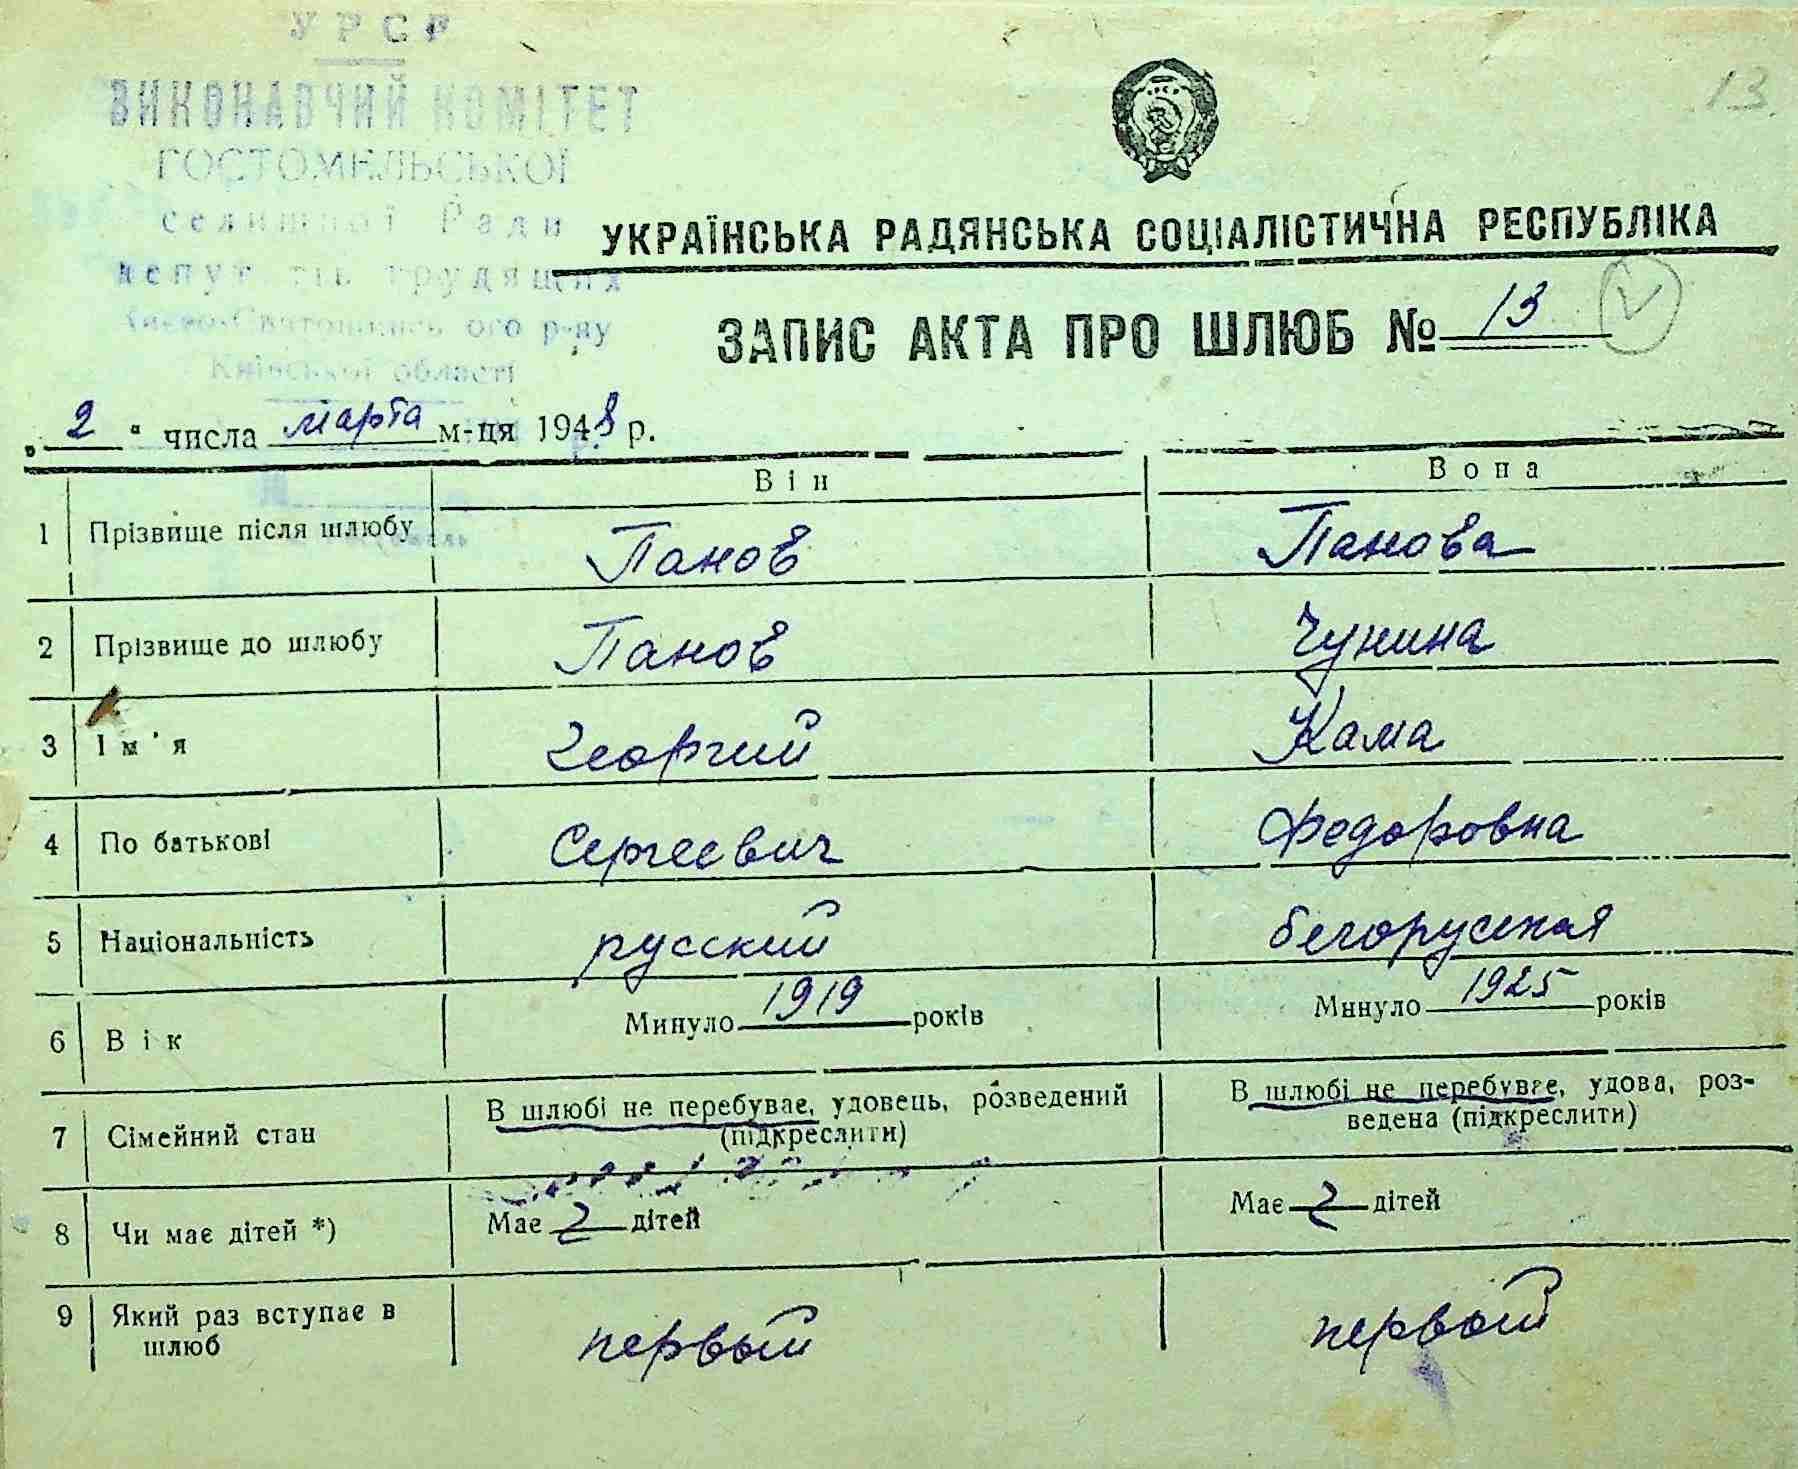 УРСР
ВИКОНАВЧИЙ КОМІТЕТ
ГОСТОМЕЛЬСЬКОЇ
селишної Ради
депут тів трудящих
Києво-Святошинсь ого р-ну
Київської області
13
УКРАЇНСЬКА РАДЯНСЬКА СОЦІАЛІСТИЧНА РЕСПУБЛІКА
ЗАПИС АКТА ПРО ШЛЮБ № 13
„ 2 " числа марта м-ця 1948 р.
Він Вона
1 Прізвище після шлюбу Панов Панова
2 Прізвище до шлюбу Панов Чунина
3 Ім'я Георгий Кама
4 По батькові Сергеевич Федоровна
5 Національність русский белорусская
6 Вік Минуло 1919 років Минуло 1925 років
7 Сімейний стан В шлюбі не перебуває, удовець, розведений (підкреслити) В шлюбі не перебуває, удова, роз-
ведена (підкреслити)
8 Чи має дітей *) Має 2 дітей Має 2 дітей
9 Який раз вступає в
шлюб первый первый